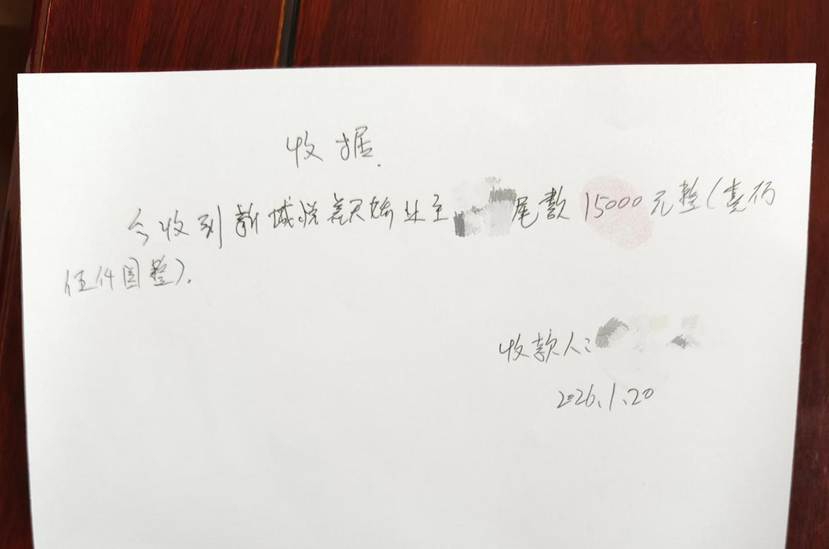 收据.
今收到新城悦业主尾款15000元整(壹仟
伍仟圆整).
收款人:
2026.1.20